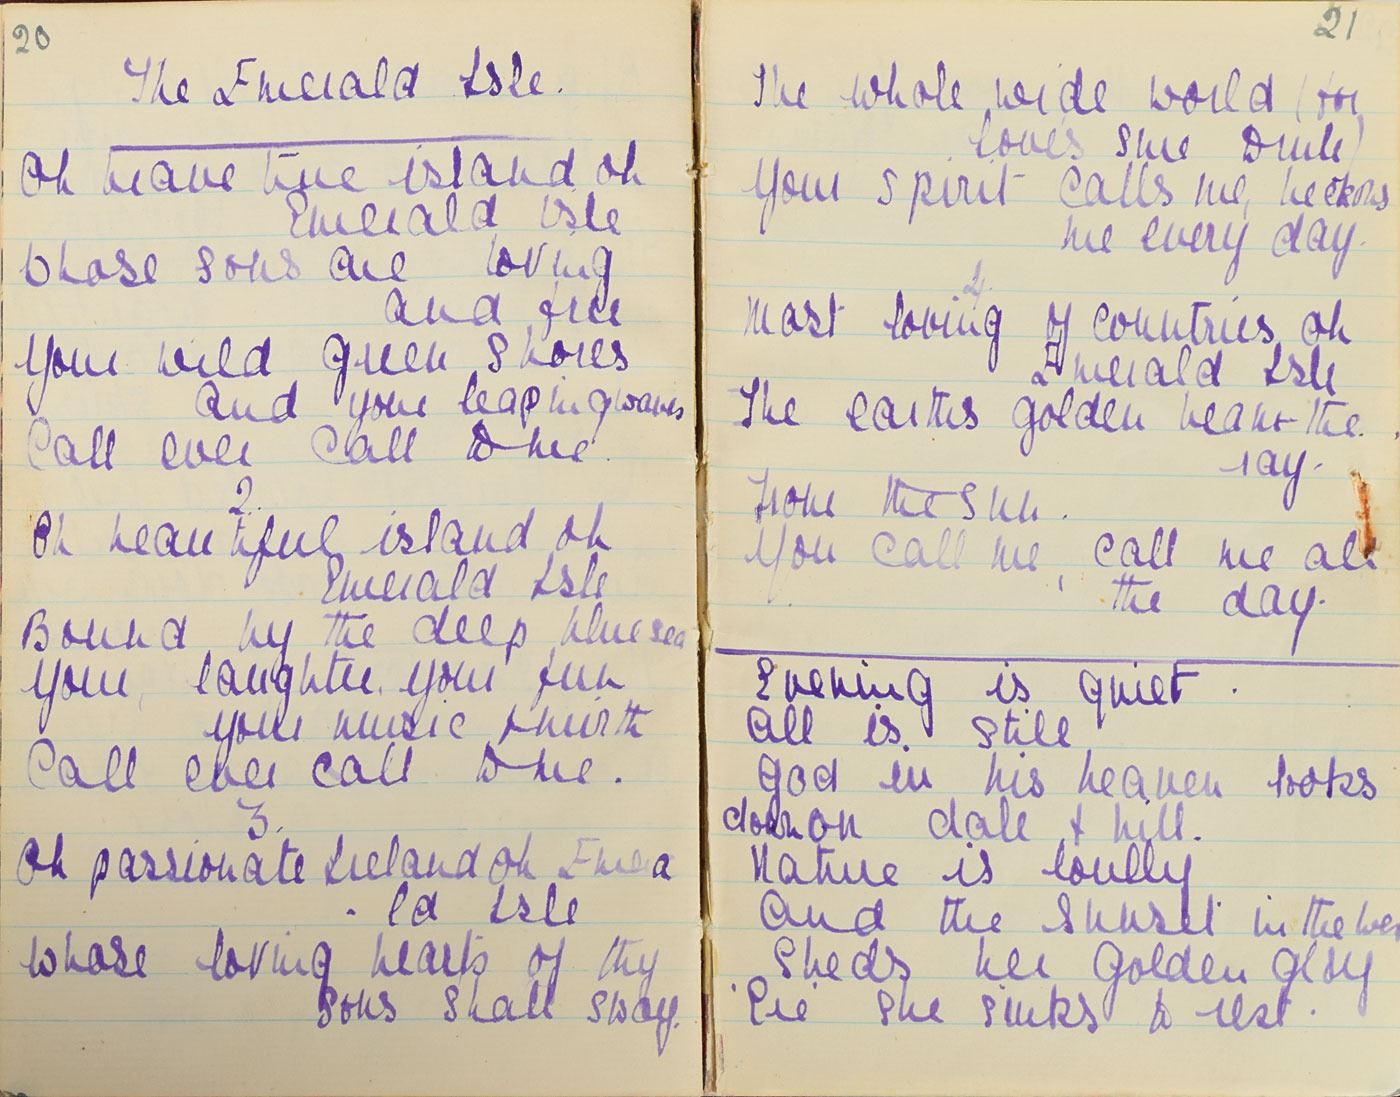 20
The Emerald Isle.
Oh brave true island oh
Emerald Isle
Whose sons are loving
and free
Your wild green shores
and your leaping waves
Call ever call to me.
2.
Oh beautiful island oh
Emerald Isle
Bound by the deep blue sea
Your laughter, your fun
your music & mirth
Call ever call to me.
3.
Oh passionate Ireland oh Emera
ld Isle
Whose loving hearts of thy
sons shall sway.
21
The whole wide world (for
loves sure
Your spirit calls me, beckons
me every day.
4.
Most loving of countries oh
Emerald Isle
The earths golden the
ray.
From the sun.
You call me, call me all
the day.
Evening is quiet.
All is still
God in his heaven looks
down on dale & hill.
Nature is lovely
And the sunset in the wes
Sheds her golden glory
'Ere she sinks to rest.